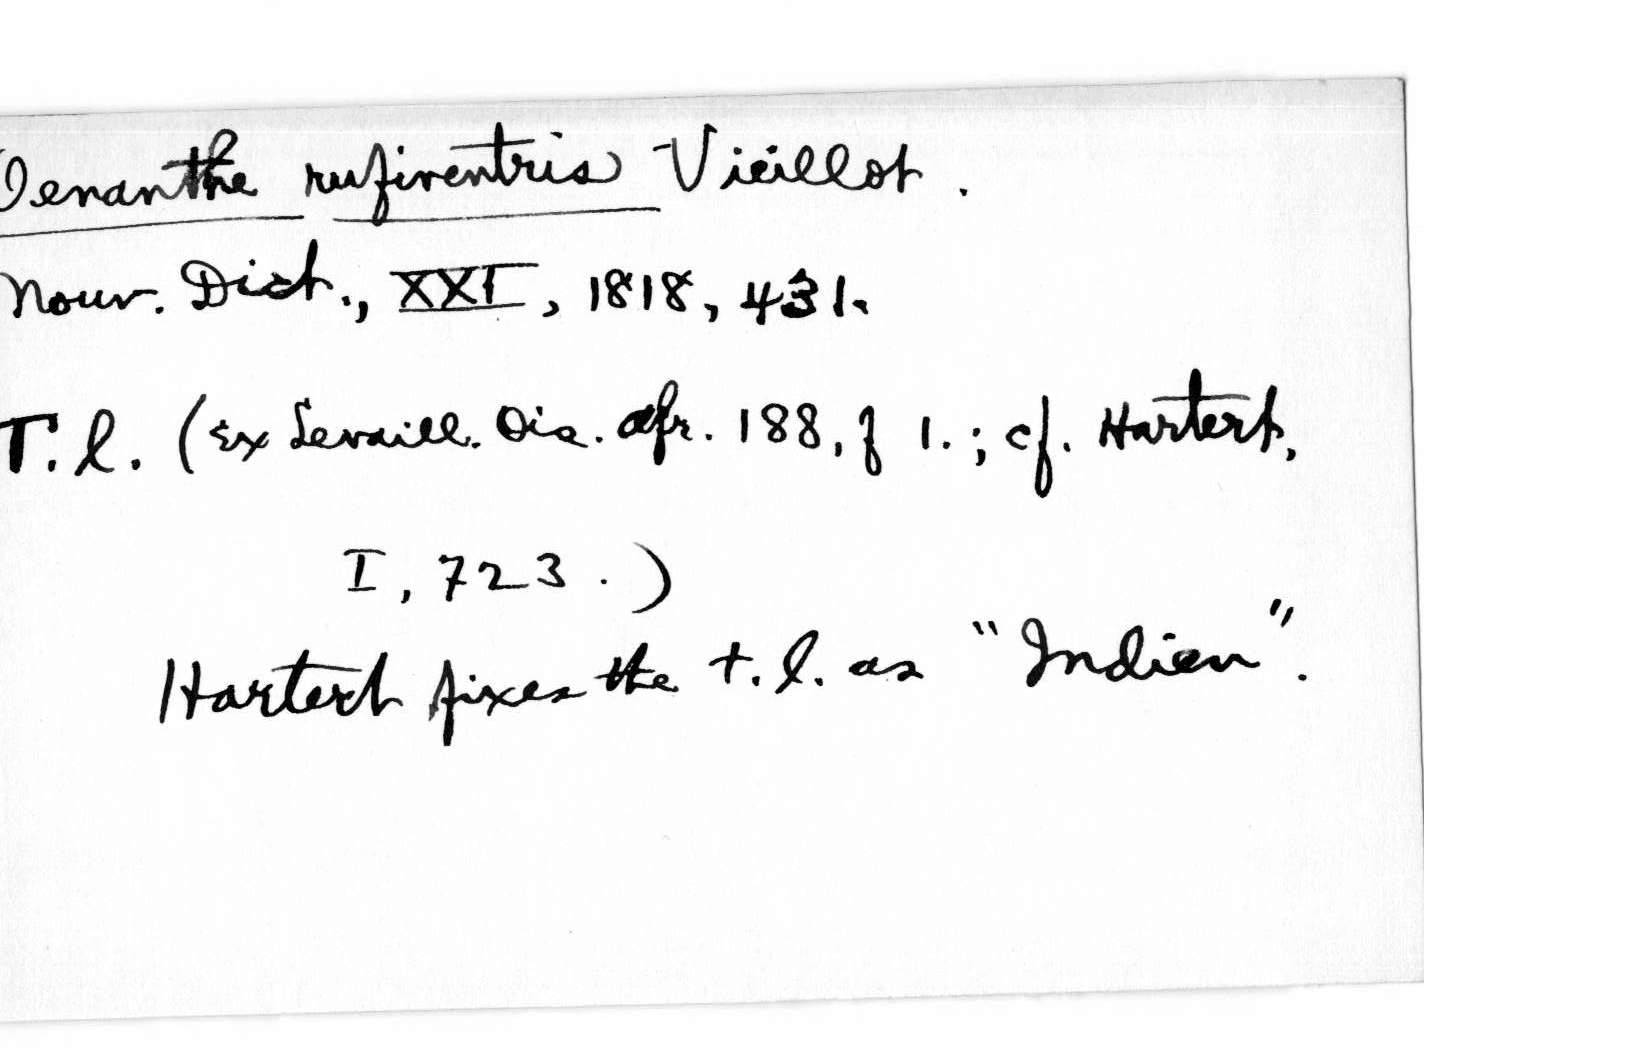 Oenanthe rufiventris Vieillot.
Nouv. Dict., XXI, 1818, 431.
T.l. (ex Levaill. Ois. afr. 188, f 1.; cf. Hartert,
I, 723.)
Hartert fixes the t.l. as "Indien".